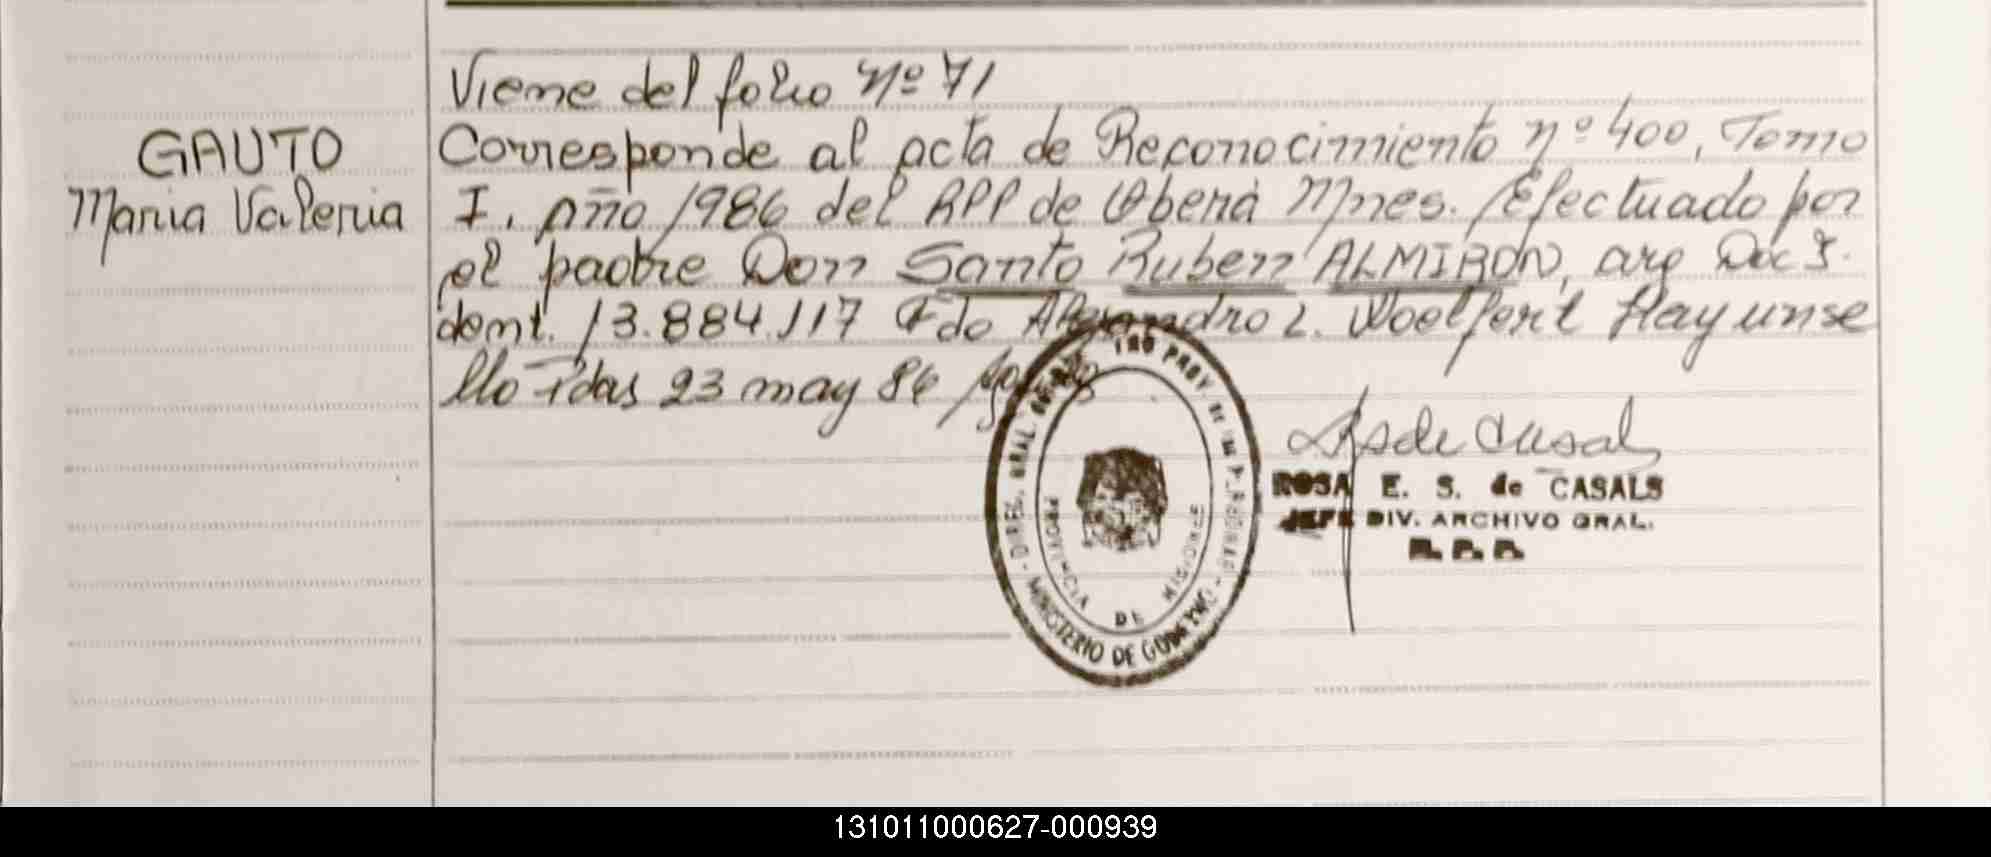 Viene del folio Nº 71
GAUTO
Maria Valeria
Corresponde al acta de Reconocimiento nº 400, Tomo
I, año 1986 del RPP de Oberá Mnes. Efectuado por
el padre Don Santo Ruben ALMIRON, arg Doc I.
dent. 13.884.117 Fdo Alejandro L. Woelfert Hay un se
llo Pdas 23 may 86
DIREC. GRAL. PROV. DE
MINISTERIO DE GOBIERNO
PROVINCIA DE MISIONES
ROSA E. S. de CASALS
JEFE DIV. ARCHIVO GRAL.
R. P. P.
131011000627-000939